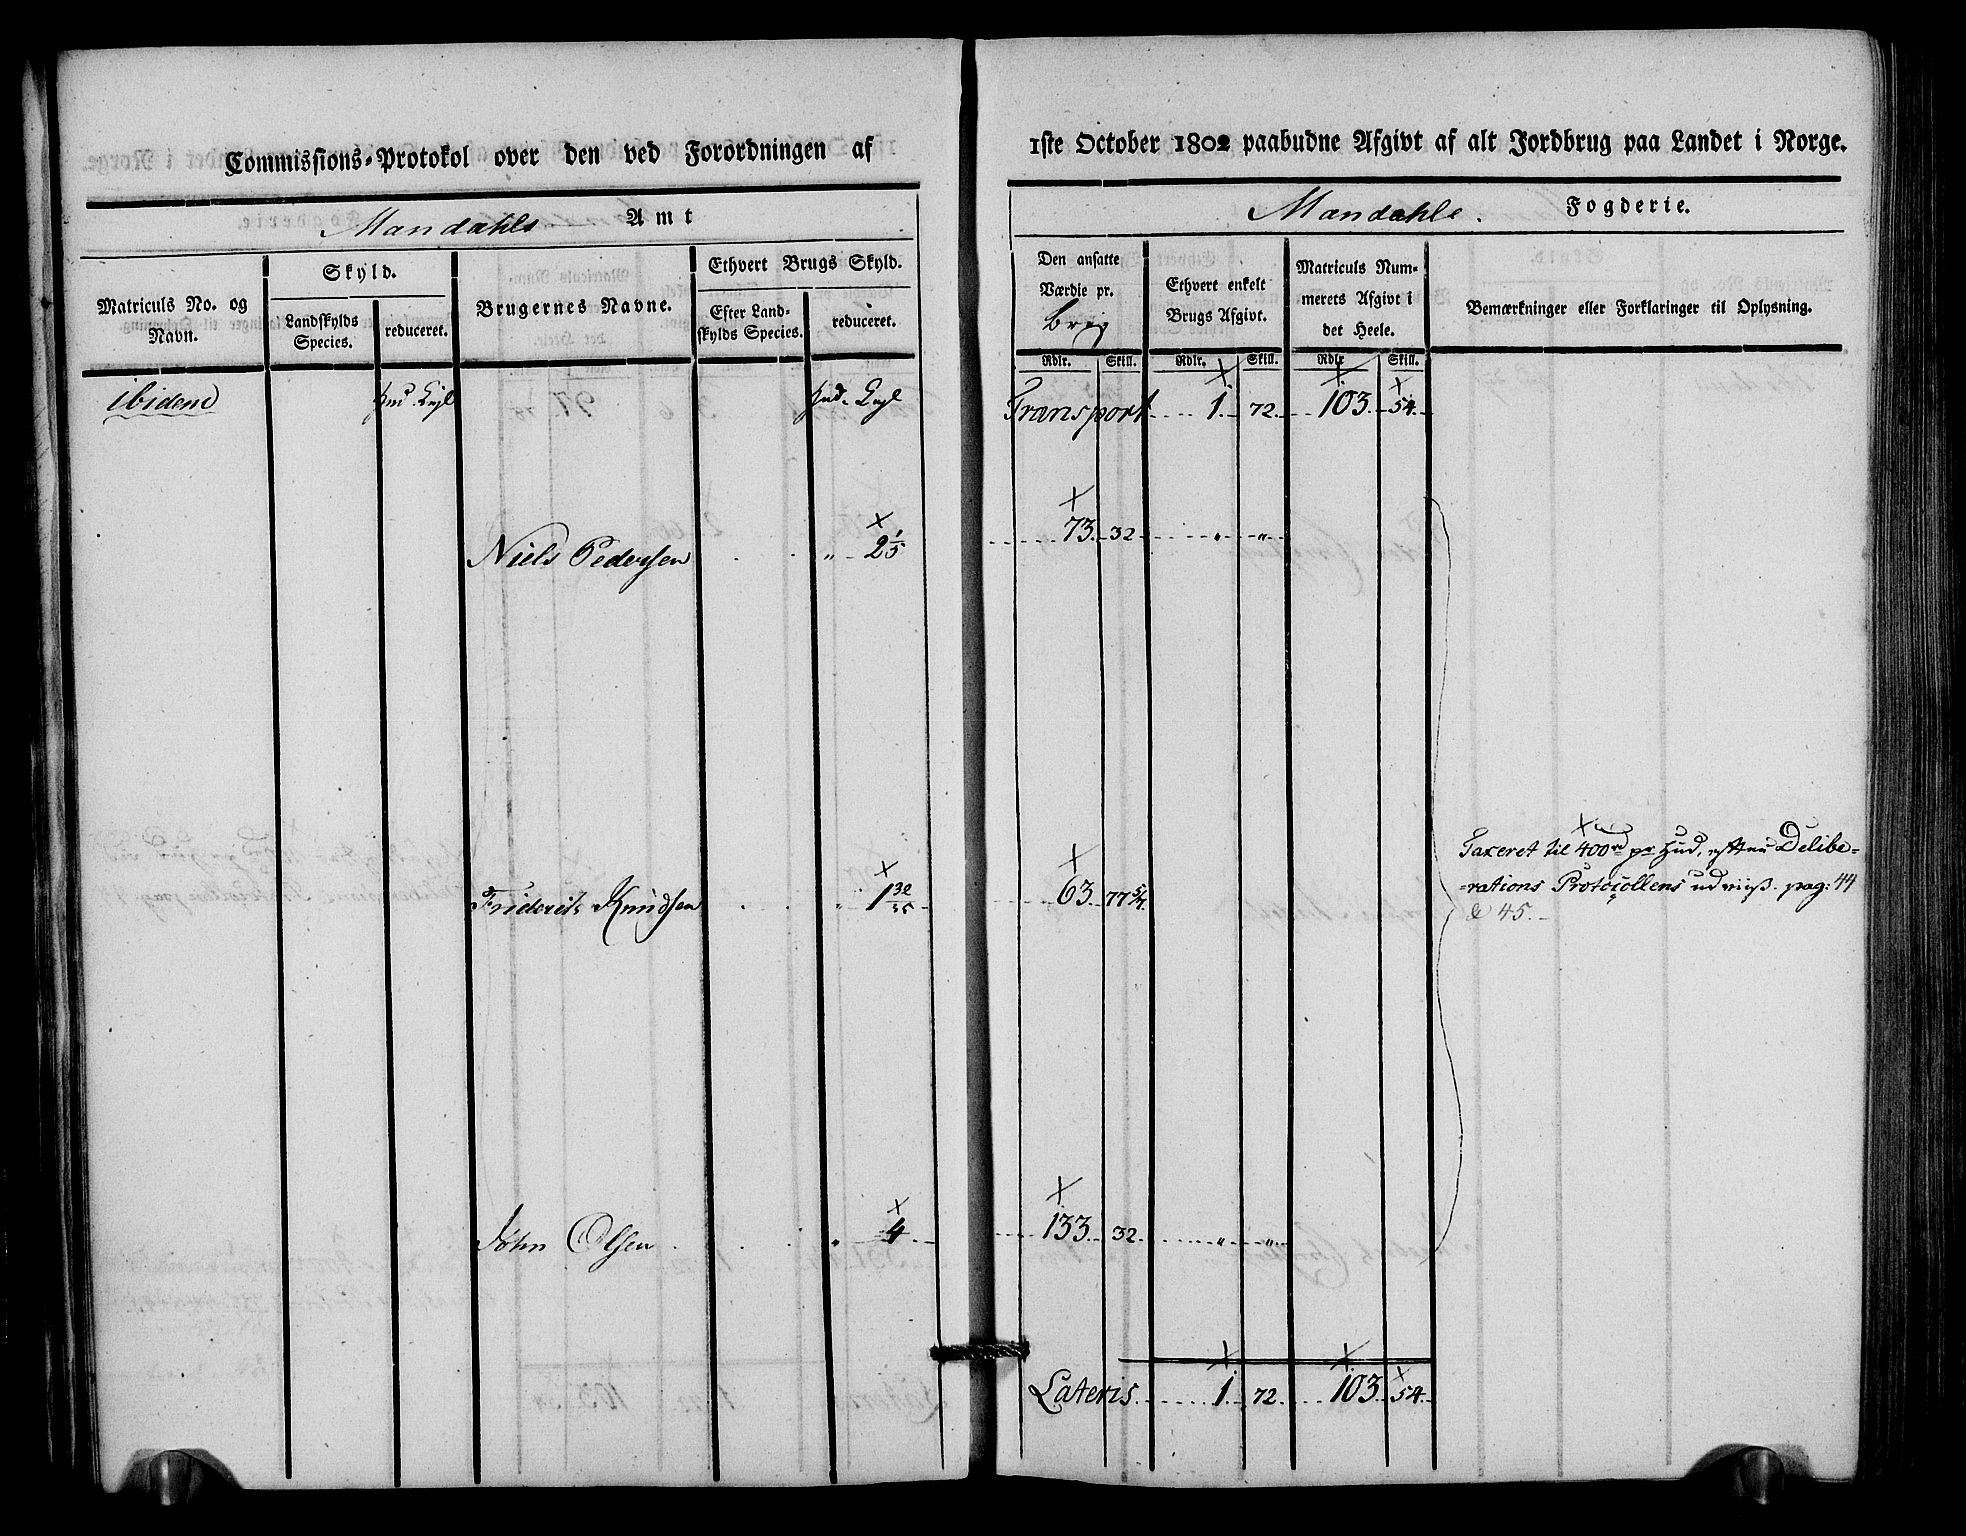 Commissions-Protokol over den ved Forordningen af
Mandahls Amt
Matriculs No. og Navn.
Skyld.
Landskylds Species.
reduceret.
Brugernes Navne.
Ethvert Brugs Skyld.
Efter Land-skylds Species.
reduceret.
ibidem
Niels Pedersen " 2 1/5
Friderik Knudsen " 1 32/35
John Olsen " 4
1ste October 1802 paabudne Afgivt af alt Jordbrug paa Landet i Norge.
Mandahls Fogderie.
Den ansatte Værdie pr. brug
Ethvert enkelt Brugs Afgivt.
Matriculs Num-merets Afgivt i det Heele.
Bemærkninger eller Forklaringer til Oplysning.
Rdlr. Skill. Rdlr. Skill. Rdlr. Skill.
Transport 1 72 103 54
73 32 " "
63 77 5/7
Taxeret til 400 rd pr Hud, efter Delibe-
-rations Protocollens udviis. pag: 44
& 45.
133 32 " "
Lateris 1 72 103 54